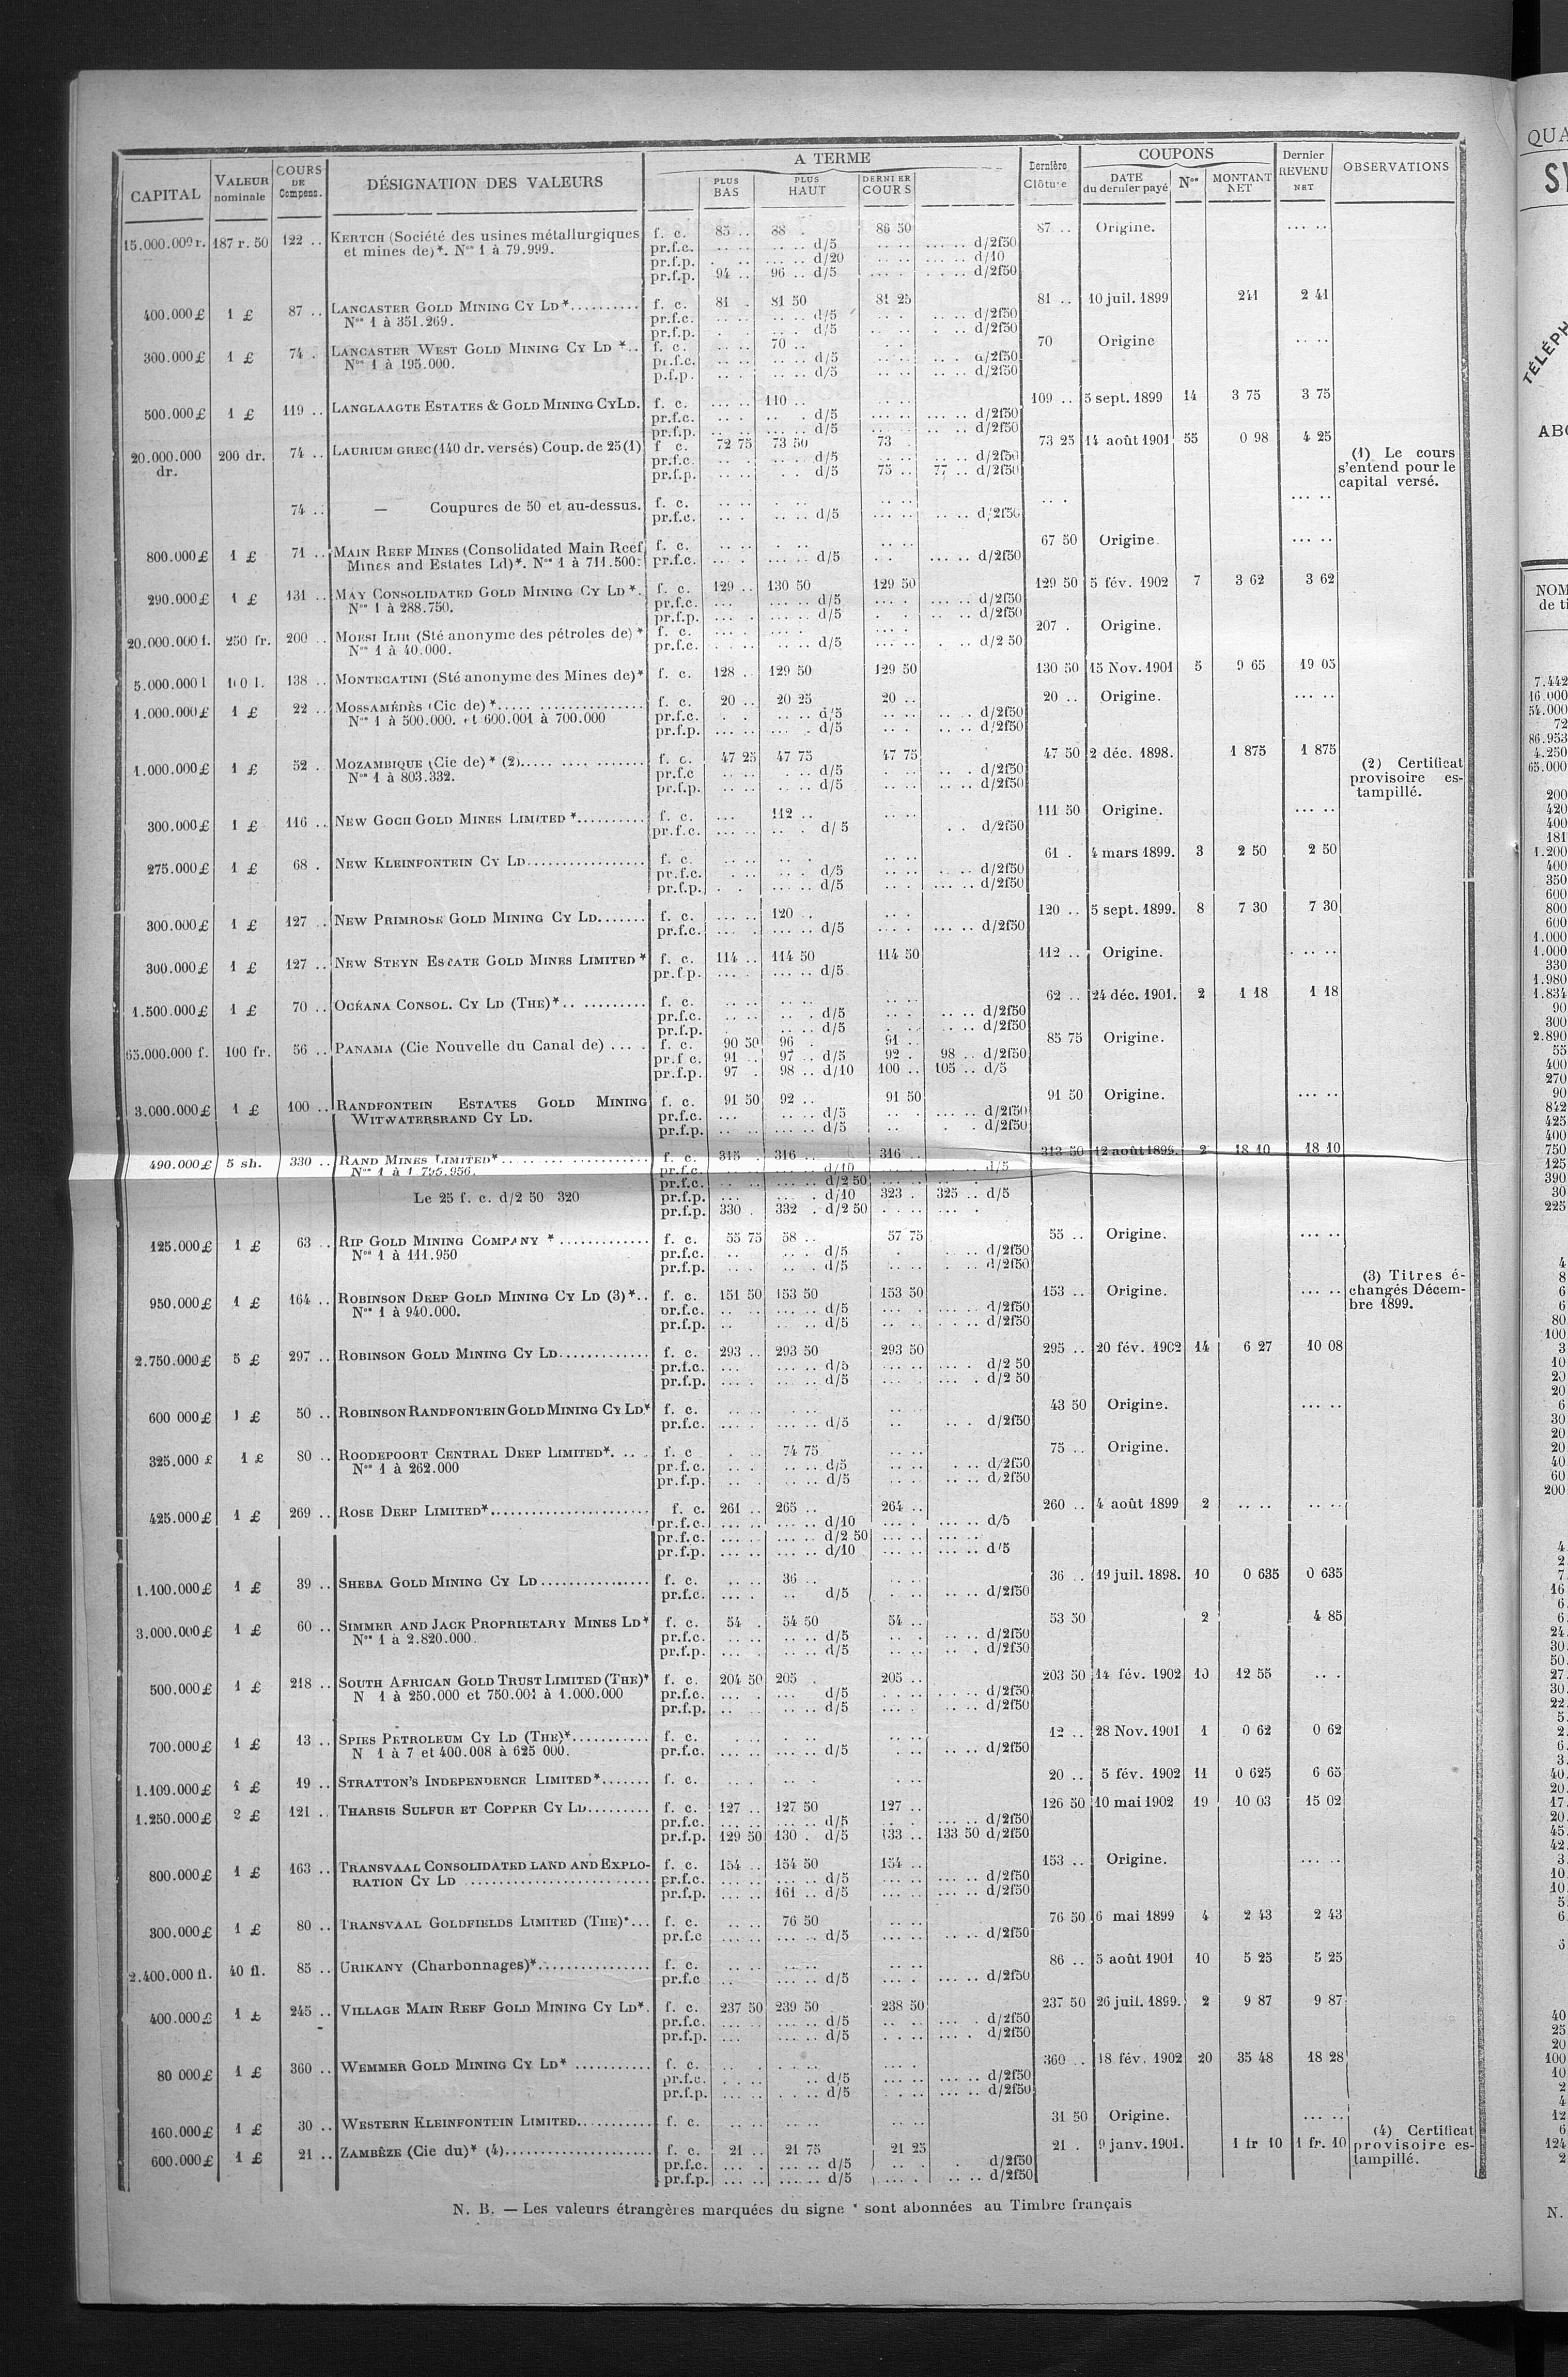 CAPITAL | VALEUR nominale | COURS DE Compens. | DÉSIGNATION DES VALEURS | A TERME | PLUS BAS | PLUS HAUT | DERNIER COURS | Dernière Clôture | COUPONS | DATE du dernier payé | Nos | MONTANT NET | Dernier REVENU NET | OBSERVATIONS
187 r. 50 | 122 .. | KERTCH (Société des usines métallurgiques | f. c. | 85 .. | 88 . | 86 50 | 87 .. | Origine. | ... ..
et mines de)*. Nos 1 à 79.999. | pr.f.c. | d/5 | d/2f50
pr.f.p. | d/20 | d/10
pr.f.p. | 94 .. | 96 .. d/5 | d/2f50
400.000£ | 1 £ | 87 .. | LANCASTER GOLD MINING CY LD*.......... | f. c. | 81 . | 81 50 | 81 25 | 81 .. | 10 juil. 1899 | 241 | 2 41
Nos 1 à 351.269. | pr.f.c. | d/5 | d/2f50
pr.f.p. | d/5 | d/2f50
300.000£ | 1 £ | 74 . | LANCASTER WEST GOLD MINING CY LD *.. | f. c. | 70 .. | 70 | Origine
Nos 1 à 195.000. | pr.f.c. | d/5 | d/2f50
p.f.p. | d/5 | d/2f50
500.000£ | 1 £ | 119 .. | LANGLAAGTE ESTATES & GOLD MINING CY LD. | f. c. | 110 .. | 109 .. | 5 sept. 1899 | 14 | 3 75 | 3 75
pr.f.c. | d/5 | d/2f50
pr.f.p. | d/5 | d/2f50
20.000.000 dr. | 200 dr. | 74 .. | LAURIUM GREC (140 dr. versés) Coup. de 25 (1) | f c. | 72 75 | 73 50 | 73 . | 73 25 | 14 août 1901 | 55 | 0 98 | 4 25 | (1) Le cours s'entend pour le capital versé.
pr.f.c. | d/5 | d/2f50
pr.f.p. | d/5 | 75 .. | 77 .. d/2f50
74 .. | — Coupures de 50 et au-dessus. | f. c.
pr.f.c. | d/5 | d/2f50
800.000£ | 1 £ | 71 .. | MAIN REEF MINES (Consolidated Main Reef | f. c. | 67 50 | Origine.
Mines and Estates Ld)*. Nos 1 à 711.500: | pr.f.c. | d/5 | d/2f50
290.000£ | 1 £ | 131 .. | MAY CONSOLIDATED GOLD MINING CY LD*. | f. c. | 129 .. | 130 50 | 129 50 | 129 50 | 5 fév. 1902 | 7 | 3 62 | 3 62
Nos 1 à 288.750. | pr.f.c. | d/5 | d/2f50
pr.f.p. | d/5 | d/2f50
20.000.000 f. | 250 fr. | 200 .. | (Sté anonyme des pétroles de)* | f. c. | 207 . | Origine.
Nos 1 à 40.000. | pr.f.c. | d/5 | d/2 50
5.000.000 l | 138 .. | MONTECATINI (Sté anonyme des Mines de)* | f. c. | 128 .. | 129 50 | 129 50 | 130 50 | 15 Nov. 1901 | 5 | 9 65 | 19 05
1.000.000£ | 1 £ | 22 .. | MOSSAMÉDÈS (Cie de)*.................... | f. c. | 20 .. | 20 25 | 20 .. | 20 .. | Origine.
Nos 1 à 500.000. et 600.001 à 700.000 | pr.f.c. | d/5 | d/2f50
pr.f.p. | d/5 | d/2f50
1.000.000£ | 1 £ | 52 . | MOZAMBIQUE (Cie de)* (2)................ | f. c. | 47 25 | 47 75 | 47 75 | 47 50 | 2 déc. 1898. | 1 875 | 1 875 | (2) Certificat provisoire estampillé.
Nos 1 à 803.332. | pr.f.c | d/5 | d/2f50
pr.f.p. | d/5 | d/2f50
300.000£ | 1 £ | 116 .. | NEW GOCH GOLD MINES LIMITED *.......... | f. c. | 112 .. | 111 50 | Origine.
pr.f.c. | d/5 | d/2f50
275.000£ | 1 £ | 68 . | NEW KLEINFONTEIN CY LD................. | f. c. | 61 . | 4 mars 1899. | 3 | 2 50 | 2 50
pr.f.c. | d/5 | d/2f50
pr.f.p. | d/5 | d/2f50
300.000£ | 1 £ | 127 .. | NEW PRIMROSE GOLD MINING CY LD....... | f. c. | 120 . | 120 .. | 5 sept. 1899. | 8 | 7 30 | 7 30
pr.f.c. | d/5 | d/2f50
300.000£ | 1 £ | 127 .. | NEW STEYN ESTATE GOLD MINES LIMITED * | f. c. | 114 .. | 114 50 | 114 50 | 112 .. | Origine.
pr.f.p. | d/5
1.500.000£ | 1 £ | 70 .. | OCÉANA CONSOL. CY LD (THE)*........... | f. c. | 62 .. | 24 déc. 1901. | 2 | 1 18 | 1 18
pr.f.c. | d/5 | d/2f50
pr.f.p. | d/5 | d/2f50
65.000.000 f. | 100 fr. | 56 .. | PANAMA (Cie Nouvelle du Canal de) .... | f. c. | 90 50 | 96 . | 91 .. | 85 75 | Origine.
pr.f c. | 91 . | 97 .. d/5 | 92 . | 98 .. d/2f50
pr.f.p. | 97 . | 98 .. d/10 | 100 .. | 105 .. d/5
3.000.000£ | 1 £ | 100 .. | RANDFONTEIN ESTATES GOLD MINING | f. c. | 91 50 | 92 .. | 91 50 | 91 50 | Origine.
WITWATERSRAND CY LD. | pr.f.c. | d/5 | d/2f50
pr.f.p. | d/5 | d/2f50
490.000£ | 5 sh. | 330 .. | RAND MINES LIMITED*................... | f. c. | 315 . | 316 .. | 316 .. | 313 50 | 12 août 1899. | 2 | 18 10 | 18 10
Nos 1 à 1.795.956. | pr.f.c. | d/10 | d/5
pr.f.c. | d/2 50
Le 25 f. c. d/2 50 320 | pr.f.p. | d/10 | 323 . | 325 .. d/5
pr.f.p. | 330 . | 332 . d/2 50
125.000£ | 1 £ | 63 .. | RIP GOLD MINING COMPANY *............. | f. c. | 55 75 | 58 .. | 57 75 | 55 .. | Origine.
Nos 1 à 111.950 | pr.f.c. | d/5 | d/2f50
pr.f.p. | d/5 | d/2f50
950.000£ | 1 £ | 164 .. | ROBINSON DEEP GOLD MINING CY LD (3)*.. | f. c. | 151 50 | 153 50 | 153 50 | 153 .. | Origine. | (3) Titres échangés Décembre 1899.
Nos 1 à 940.000. | pr.f.c. | d/5 | d/2f50
pr.f.p. | d/5 | d/2f50
2.750.000£ | 5 £ | 297 .. | ROBINSON GOLD MINING CY LD............. | f. c. | 293 .. | 293 50 | 293 50 | 295 .. | 20 fév. 1902 | 14 | 6 27 | 10 08
pr.f.c. | d/5 | d/2 50
pr.f.p. | d/5 | d/2 50
600 000£ | 1 £ | 50 .. | ROBINSON RANDFONTEIN GOLD MINING CY LD* | f. c. | 43 50 | Origine.
pr.f.c. | d/5 | d/2f50
325.000 £ | 1 £ | 80 .. | ROODEPOORT CENTRAL DEEP LIMITED*. .. .. | f. c | 74 75 | 75 .. | Origine.
Nos 1 à 262.000 | pr.f.c. | d/5 | d/2f50
pr.f.p. | d/5 | d/2f50
425.000£ | 1 £ | 269 .. | ROSE DEEP LIMITED*...................... | f. c. | 261 .. | 265 .. | 264 .. | 260 .. | 4 août 1899 | 2
pr.f.c. | d/10 | d/5
pr.f.c. | d/2 50
pr.f.p. | d/10 | d/5
1.100.000£ | 1 £ | 39 .. | SHEBA GOLD MINING CY LD............... | f. c. | 36 .. | 36 .. | 19 juil. 1898. | 10 | 0 635 | 0 635
pr.f.c. | d/5 | d/2f50
3.000.000£ | 1 £ | 60 .. | SIMMER AND JACK PROPRIETARY MINES LD* | f. c. | 54 . | 54 50 | 54 .. | 53 50 | 2 | 4 85
Nos 1 à 2.820.000. | pr.f.c. | d/5 | d/2f50
pr.f.p. | d/5 | d/2f50
500.000£ | 1 £ | 218 .. | SOUTH AFRICAN GOLD TRUST LIMITED (THE)* | f. c. | 204 50 | 205 . | 205 .. | 203 50 | 14 fév. 1902 | 10 | 12 55
N 1 à 250.000 et 750.001 à 1.000.000 | pr.f.c. | d/5 | d/2f50
pr.f.p. | d/5 | d/2f50
700.000£ | 1 £ | 13 .. | SPIES PETROLEUM CY LD (THE)*........... | f. c. | 12 .. | 28 Nov. 1901 | 1 | 0 62 | 0 62
N 1 à 7 et 400.008 à 625 000. | pr.f.c. | d/5 | d/2f50
1.109.000£ | £ | 19 .. | STRATTON'S INDEPENDENCE LIMITED*....... | f. c. | 20 .. | 5 fév. 1902 | 11 | 0 625 | 6 65
1.250.000£ | 2 £ | 121 .. | THARSIS SULFUR ET COPPER CY LD......... | f. c. | 127 .. | 127 50 | 127 .. | 126 50 | 10 mai 1902 | 19 | 10 03 | 15 02
pr.f.c. | d/5 | d/2f50
pr.f.p. | 129 50 | 130 . d/5 | 133 .. | 133 50 d/2f50
800.000£ | 1 £ | 163 .. | TRANSVAAL CONSOLIDATED LAND AND EXPLO- | f. c. | 154 .. | 154 50 | 154 .. | 153 .. | Origine.
RATION CY LD ......................... | pr.f.c. | d/5 | d/2f50
pr.f.p. | 161 .. d/5 | d/2f50
300.000£ | 1 £ | 80 .. | TRANSVAAL GOLDFIELDS LIMITED (THE)*... | f. c. | 76 50 | 76 50 | 6 mai 1899 | 4 | 2 43 | 2 43
pr.f.c | d/5 | d/2f50
2.400.000 fl. | 40 fl. | 85 .. | URIKANY (Charbonnages)*................ | f. c. | 86 .. | 5 août 1901 | 10 | 5 25 | 5 25
pr.f.c | d/5 | d/2f50
400.000£ | 1 £ | 245 .. | VILLAGE MAIN REEF GOLD MINING CY LD*. | f. c. | 237 50 | 239 50 | 238 50 | 237 50 | 26 juil. 1899. | 2 | 9 87 | 9 87
pr.f.c. | d/5 | d/2f50
pr.f.p. | d/5 | d/2f50
80 000£ | 1 £ | 360 .. | WEMMER GOLD MINING CY LD* ........... | f. c. | 360 .. | 18 fév. 1902 | 20 | 35 48 | 18 28
pr.f.c. | d/5 | d/2f50
pr.f.p. | d/5 | d/2f50
160.000£ | 1 £ | 30 .. | WESTERN KLEINFONTEIN LIMITED........... | f. c. | 31 50 | Origine.
600.000£ | 1 £ | 21 .. | ZAMBÈZE (Cie du)* (4)................... | f. c. | 21 .. | 21 75 | 21 25 | 21 . | 9 janv. 1901. | 1 fr 10 | 1 fr. 10 | (4) Certificat provisoire estampillé.
pr.f.c. | d/5 | d/2f50
pr.f.p. | d/5 | d/2f50
N. B. — Les valeurs étrangères marquées du signe * sont abonnées au Timbre français